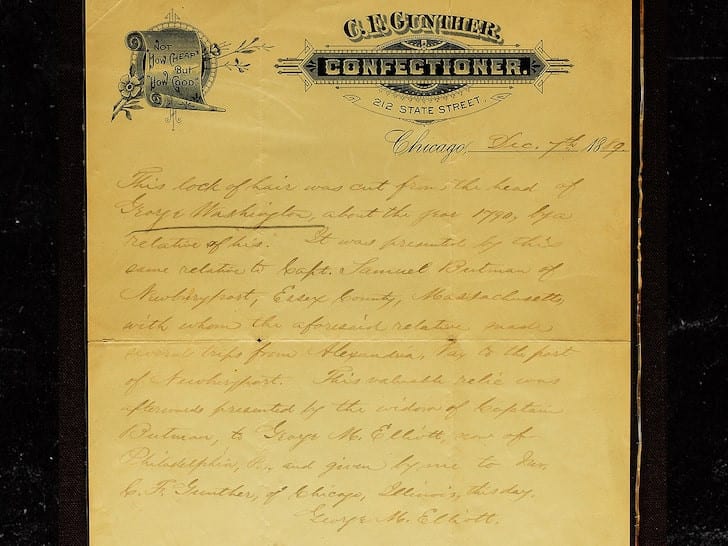 Not
How Cheap
But
How Good.
C. F. GUNTHER,
CONFECTIONER.
212 STATE STREET.
Chicago, Dec. 7th 1889.
This lock of hair was cut from the head of
George Washington, about the year 1790, by a
relative of his. It was presented by this
same relative to Capt. Samuel Butman of
Newburyport, Essex County, Massachusetts,
with whom the aforesaid relative made
several trips from Alexandria, Va, to the port
of Newburyport. This valuable relic was
afterwards presented by the widow of Captain
Butman, to George M. Elliott, now of
Philadelphia, Pa., and given by me to Mr.
C. F. Gunther, of Chicago, Illinois, this day.
George M. Elliott.